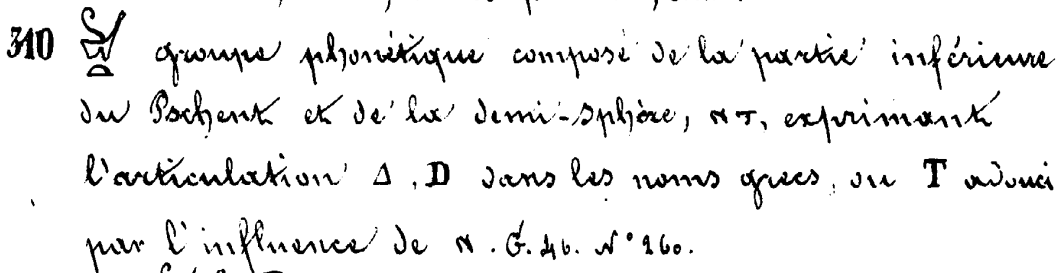 310 groupe phonétique composé de la partie inférieure
du Pschent et de la demi-sphère, ⲛⲧ, exprimant
l'articulation Δ, D dans les noms grecs, ou T adouci
par l'influence de ⲛ. G. 46. N° 260.